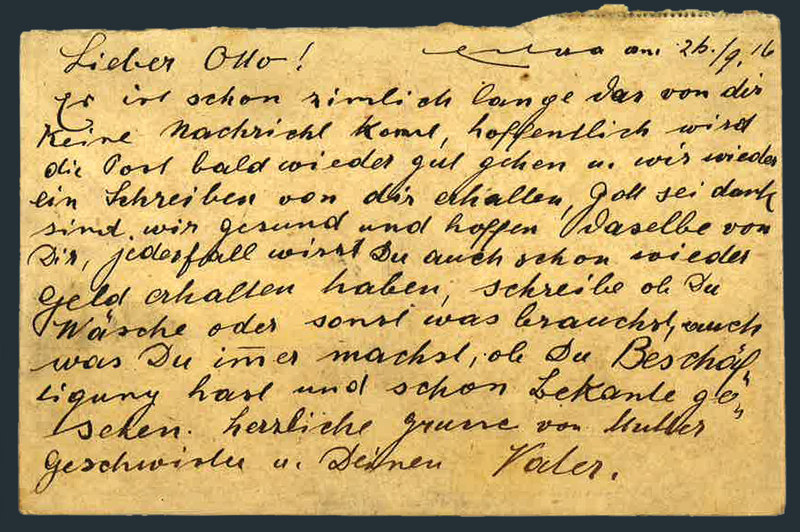 Lieber Otto! am 26./9. 16
Es ist schon zimlich lange das von dir
Keine Nachricht komt, hoffentlich wird
die Post bald wieder gut gehen u. wir wieder
ein Schreiben von dir erhallen, Gott sei dank
sind wir gesund und hoffen daselbe von
Dir, jedesfall wirst Du auch schon wieder
Geld erhalten haben, schreibe ob Du
Wäsche oder sonst was brauchst, auch
was Du im̅er machst, ob Du Beschäf„
tigung hast und schon Bekante ge„
sehen. herzliche grusse von Mutter
Geschwister u. Deinen Vater.